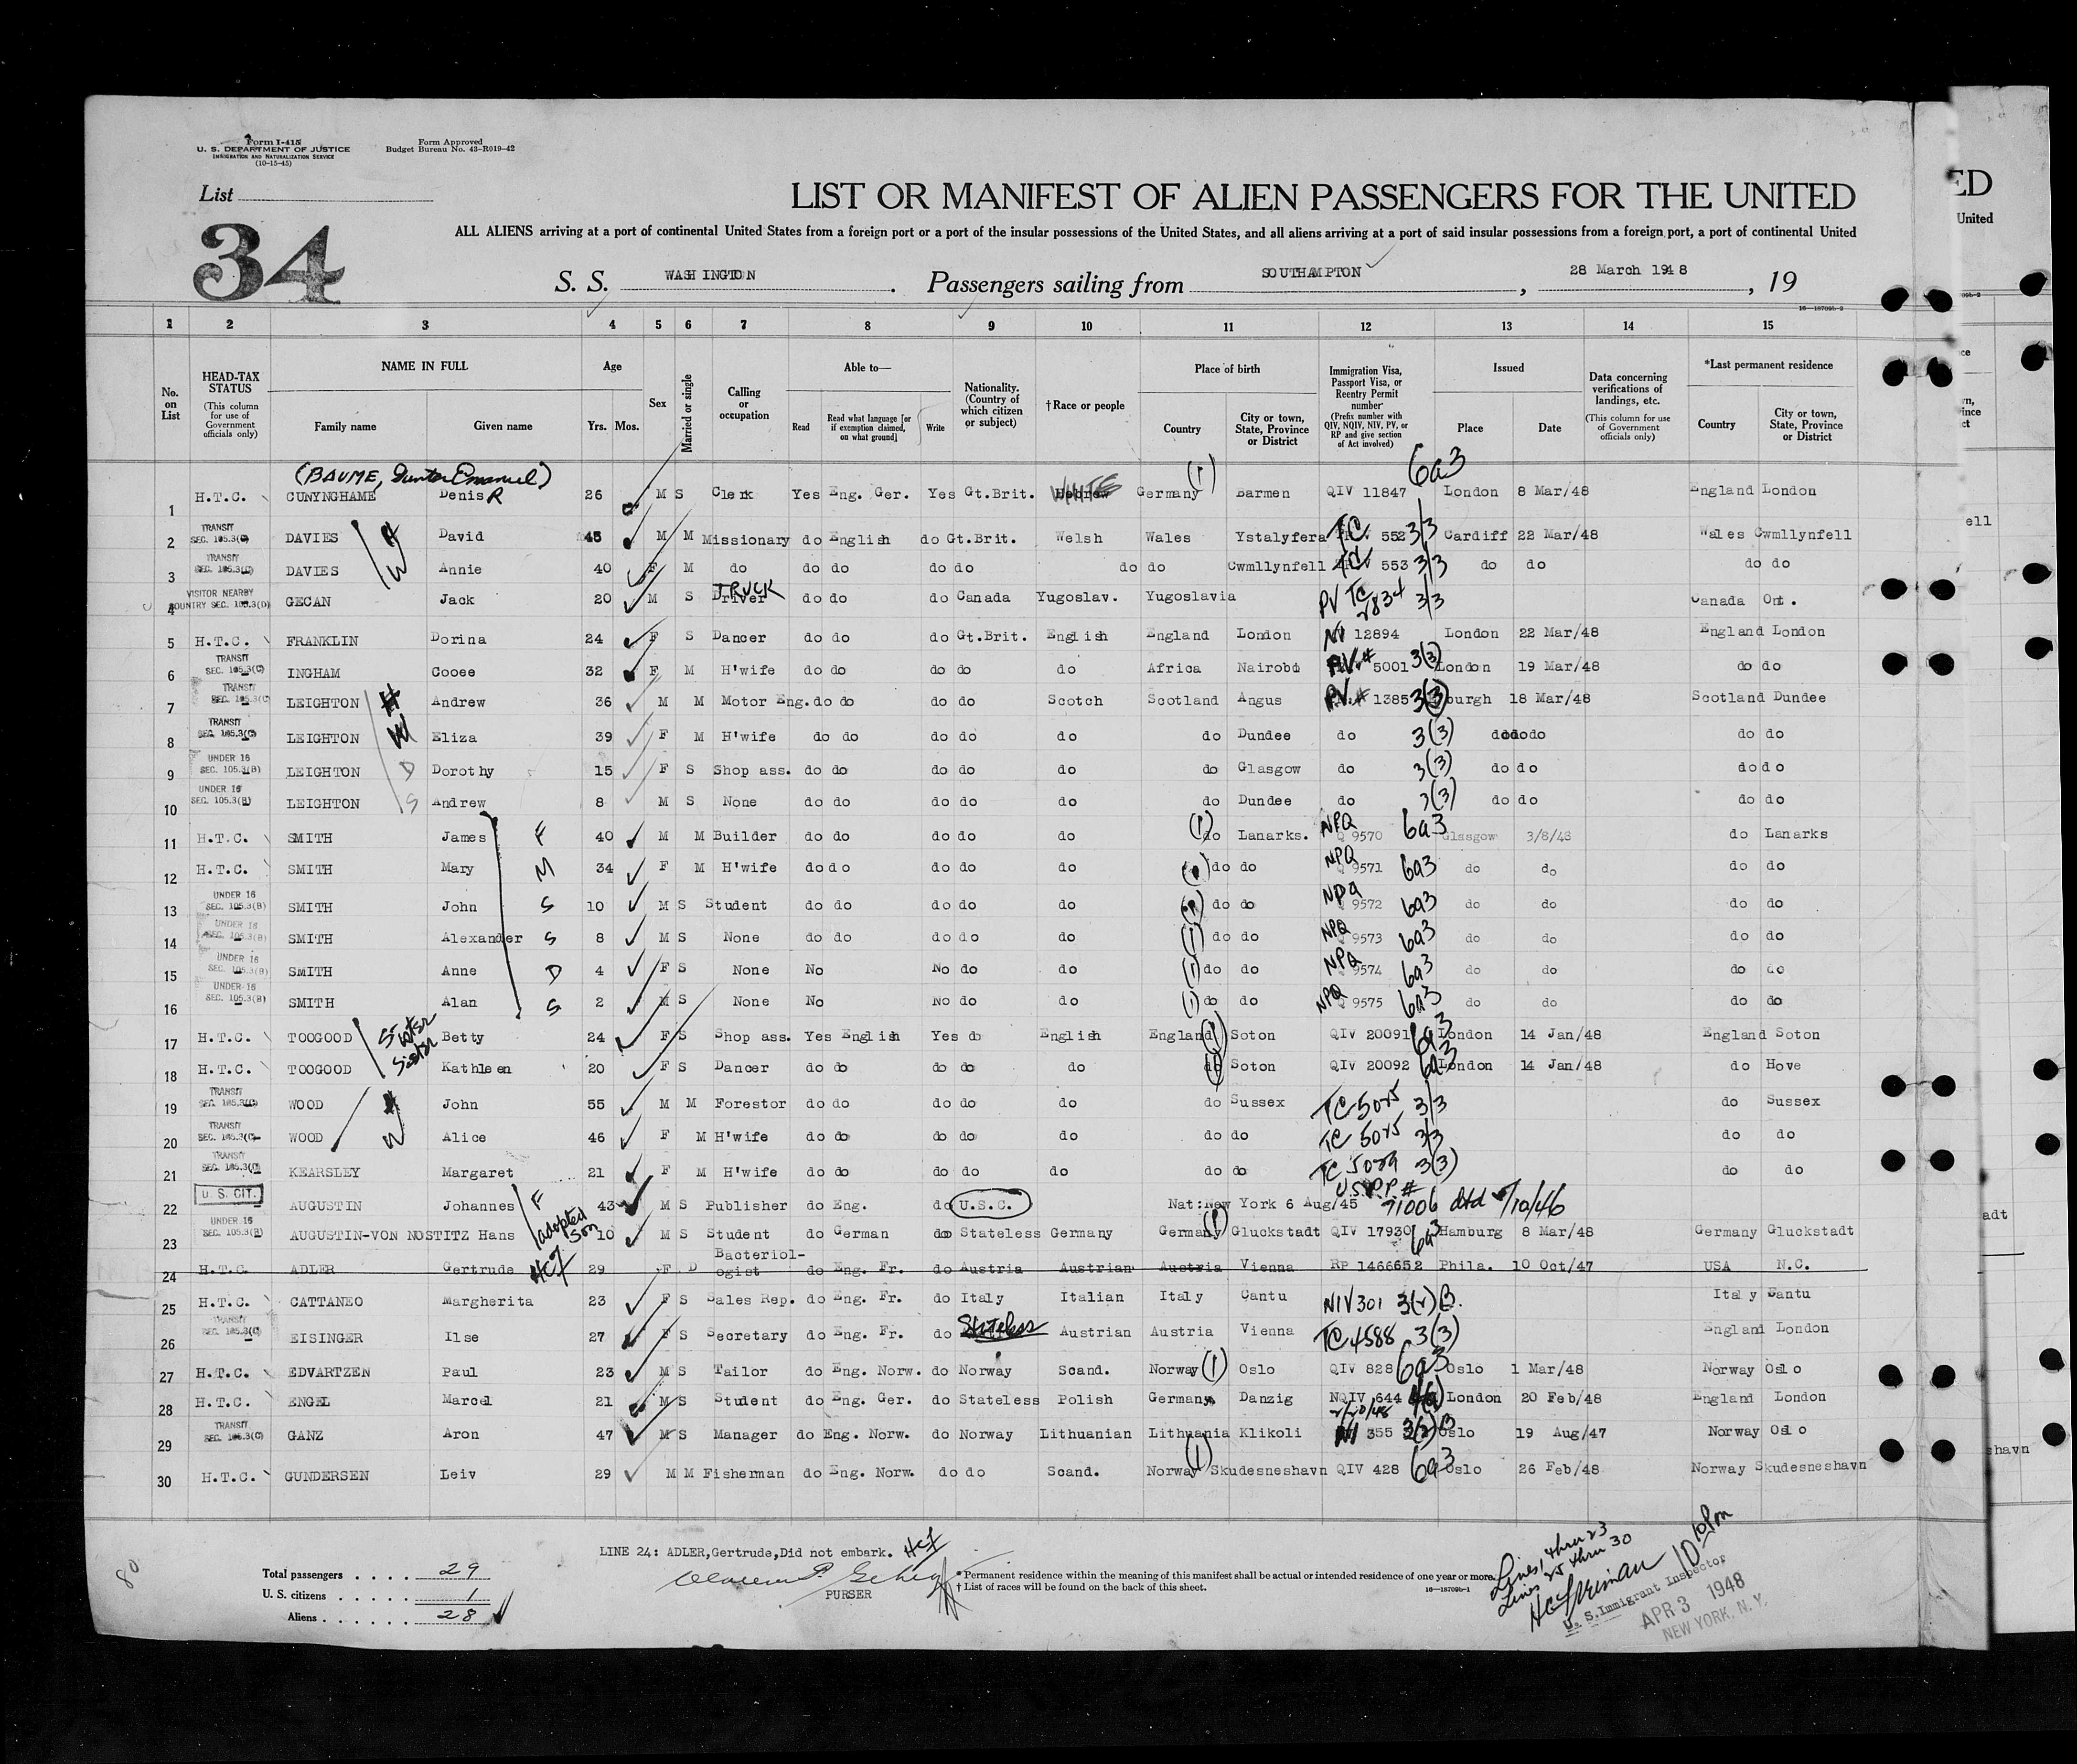 Form I-415
U. S. DEPARTMENT OF JUSTICE
IMMIGRATION AND NATURALIZATION SERVICE
(10-15-45)
Form Approved
Budget Bureau No. 43-R019-42
List
34
LIST OR MANIFEST OF ALIEN PASSENGERS FOR THE UNITED
ALL ALIENS arriving at a port of continental United States from a foreign port or a port of the insular possessions of the United States, and all aliens arriving at a port of said insular possessions from a foreign port, a port of continental United
S. S. WASHINGTON. Passengers sailing from SOUTHAMPTON, 28 March 1948, 19
16—18709b-2
1 2 3 4 5 6 7 8 9 10 11 12 13 14 15
No. on List
HEAD-TAX STATUS (This column for use of Government officials only)
NAME IN FULL
Family name Given name
Age
Yrs. Mos.
Sex
Married or single
Calling or occupation
Able to—
Read Read what language [or if exemption claimed, on what ground] Write
Nationality. (Country of which citizen or subject)
†Race or people
Place of birth
Country City or town, State, Province or District
Immigration Visa, Passport Visa, or Reentry Permit number (Prefix number with QIV, NQIV, NIV, PV, or RP and give section of Act involved)
Issued
Place Date
Data concerning verifications of landings, etc. (This column for use of Government officials only)
*Last permanent residence
Country City or town, State, Province or District
(BAUME, Gunter Emanuel) 6a3
1 H.T.C. CUNYNGHAME Denis R 26 M S Clerk Yes Eng. Ger. Yes Gt.Brit. WHITE Germany (1) Barmen QIV 11847 London 8 Mar/48 England London
2 TRANSIT SEC. 105.3(C) DAVIES H David 45 M M Missionary do English do Gt.Brit. Welsh Wales Ystalyfera TC 552 3/3 Cardiff 22 Mar/48 Wales Cwmllynfell
3 TRANSIT SEC. 105.3(C) DAVIES W Annie 40 F M do do do do do do do Cwmllynfell TC 553 3/3 do do do do
4 VISITOR NEARBY COUNTRY SEC. 105.3(D) GECAN Jack 20 M S TRUCK Driver do do do Canada Yugoslav. Yugoslavia PV TC 2834 3/3 Canada Ont.
5 H.T.C. FRANKLIN Dorina 24 F S Dancer do do do Gt.Brit. English England London 12894 London 22 Mar/48 England London
6 TRANSIT SEC. 105.3(C) INGHAM Cooee 32 F M H'wife do do do do do Africa Nairobi PV # 5001 3(3) London 19 Mar/48 do do
7 TRANSIT SEC. 105.3(C) LEIGHTON H Andrew 36 M M Motor Eng. do do do do Scotch Scotland Angus PV # 1385 3(3) burgh 18 Mar/48 Scotland Dundee
8 TRANSIT SEC. 105.3(C) LEIGHTON W Eliza 39 F M H'wife do do do do do do Dundee do 3(3) do do do do
9 UNDER 16 SEC. 105.3(B) LEIGHTON D Dorothy 15 F S Shop ass. do do do do do do Glasgow do 3(3) do do do do
10 UNDER 16 SEC. 105.3(B) LEIGHTON S Andrew 8 M S None do do do do do do Dundee do 3(3) do do do do
11 H.T.C. SMITH James F 40 M M Builder do do do do do (1) do Lanarks. NPQ 9570 6a3 Glasgow 3/8/48 do Lanarks
12 H.T.C. SMITH Mary M 34 F M H'wife do do do do do do do NPQ 9571 6a3 do do do do
13 UNDER 16 SEC. 105.3(B) SMITH John S 10 M S Student do do do do do do do NPQ 9572 6a3 do do do do
14 UNDER 16 SEC. 105.3(B) SMITH Alexander S 8 M S None do do do do do (1) do do NPQ 9573 6a3 do do do do
15 UNDER 16 SEC. 105.3(B) SMITH Anne D 4 F S None No No do do (1) do do NPQ 9574 6a3 do do do do
16 UNDER 16 SEC. 105.3(B) SMITH Alan S 2 M S None No No do do (1) do do NPQ 9575 6a3 do do do do
17 H.T.C. TOOGOOD Sister Betty 24 F S Shop ass. Yes English Yes do English England (1) Soton QIV 20091 6a3 London 14 Jan/48 England Soton
18 H.T.C. TOOGOOD Sister Kathleen 20 F S Dancer do do do do do do (1) Soton QIV 20092 6a3 London 14 Jan/48 do Hove
19 TRANSIT SEC. 105.3(C) WOOD H John 55 M M Forestor do do do do do do Sussex TC 5025 3/3 do Sussex
20 TRANSIT SEC. 105.3(C) WOOD W Alice 46 F M H'wife do do do do do do do TC 5025 3/3 do do
21 TRANSIT SEC. 105.3(C) KEARSLEY Margaret 21 F M H'wife do do do do do do do TC 5029 3(3) do do
22 U. S. CIT. AUGUSTIN Johannes F 43 M S Publisher do Eng. do U.S.C. Nat: New York 6 Aug/45 U.S.P.P.# 71006 dtd /10/46
23 UNDER 16 SEC. 105.3(B) AUGUSTIN-VON NOSTITZ Hans adopted son 10 M S Student do German do Stateless Germany Germany (1) Gluckstadt QIV 17930 6a3 Hamburg 8 Mar/48 Germany Gluckstadt
24 H.T.C. ADLER Gertrude HCF 29 F D Bacteriologist do Eng. Fr. do Austria Austrian Austria Vienna RP 1466652 Phila. 10 Oct/47 USA N.C.
25 H.T.C. CATTANEO Margherita 23 F S Sales Rep. do Eng. Fr. do Italy Italian Italy Cantu NIV 301 3(2) B. Italy Cantu
26 TRANSIT SEC. 105.3(C) EISINGER Ilse 27 F S Secretary do Eng. Fr. do Stateless Austrian Austria Vienna TC 4588 3(3) England London
27 H.T.C. EDVARTZEN Paul 23 M S Tailor do Eng. Norw. do Norway Scand. Norway (1) Oslo QIV 828 6a3 Oslo 1 Mar/48 Norway Oslo
28 H.T.C. ENGEL Marcel 21 M S Student do Eng. Ger. do Stateless Polish Germany Danzig NQIV 644 London 20 Feb/48 England London
29 TRANSIT SEC. 105.3(C) GANZ Aron 47 M S Manager do Eng. Norw. do Norway Lithuanian Lithuania Klikoli 2/20/48 355 3(2)B Oslo 19 Aug/47 Norway Oslo
30 H.T.C. GUNDERSEN Leiv 29 M M Fisherman do Eng. Norw. do do Scand. Norway (1) Skudesneshavn QIV 428 6a3 Oslo 26 Feb/48 Norway Skudesneshavn
LINE 24: ADLER,Gertrude,Did not embark. HCF
PURSER
Total passengers . . . . 29
U. S. citizens . . . . . 1
Aliens . . . . . . . 28
80
* Permanent residence within the meaning of this manifest shall be actual or intended residence of one year or more.
† List of races will be found on the back of this sheet.
16—18709b-1
Lines 1 thru 23
Lines 25 thru 30
10 10 Pm
U. S. Immigrant Inspector
APR 3 1948
NEW YORK, N. Y.
ED
United
ell
adt
shavn